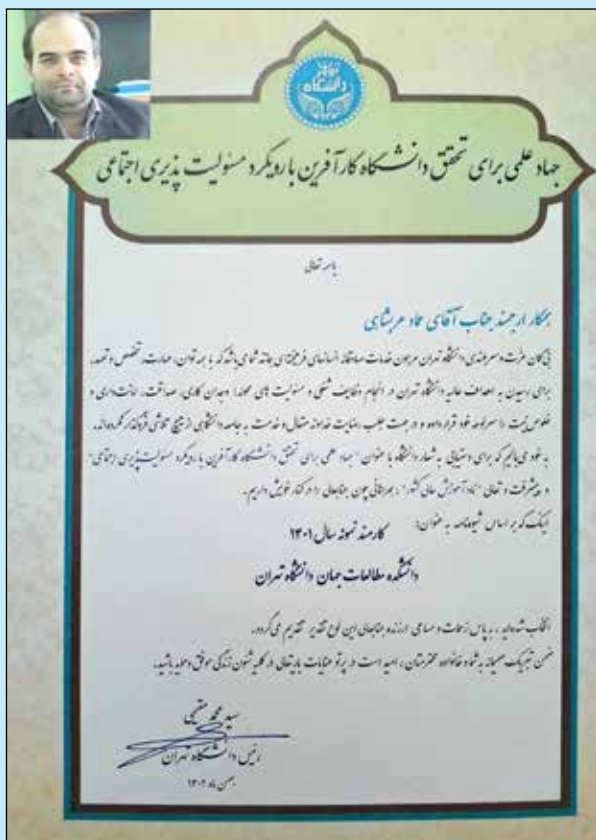 دانشگاه تهران
جهاد علمی برای تحقق دانشگاه کارآفرین با رویکرد مسئولیت پذیری اجتماعی
باسمه تعالی
همکار ارجمند جناب آقای عماد عربشاهی
بی گمان عزت و سربلندی دانشگاه تهران مرهون خدمات صادقانه انسانهای فرهیخته‌ای مانند شما می باشد که با همه توان، مهارت، تخصص و تعهد،
برای رسیدن به اهداف عالیه دانشگاه تهران در انجام وظایف شغلی و مسئولیت های محوله؛ وجدان کاری، صداقت، امانت داری و
خلوص نیت را سرلوحه خود قرار داده و در جهت جلب رضایت خداوند متعال و خدمت به جامعه دانشگاهی از هیچ تلاشی فروگذار نکرده‌اند.
به خود می بالیم که برای دستیابی به شعار دانشگاه با عنوان "جهاد علمی برای تحقق دانشگاه کارآفرین با رویکرد مسئولیت پذیری اجتماعی"
و پیشرفت و تعالی "نهاد آموزش عالی کشور"، همراهانی چون جنابعالی را در کنار خویش داریم.
اینک که بر اساس شیوه‌نامه به عنوان:
کارمند نمونه سال ۱۴۰۱
دانشکده مطالعات جهان دانشگاه تهران
انتخاب شده‌اید، به پاس زحمات و مساعی ارزنده جنابعالی این لوح تقدیر تقدیم می گردد.
ضمن تبریک صمیمانه به شما و خانواده محترمتان، امید است در پرتو عنایات باریتعالی در کلیه شئون زندگی موفق و موید باشید.
سید محمد مقیمی
رئیس دانشگاه تهران
بهمن ماه ۱۴۰۲